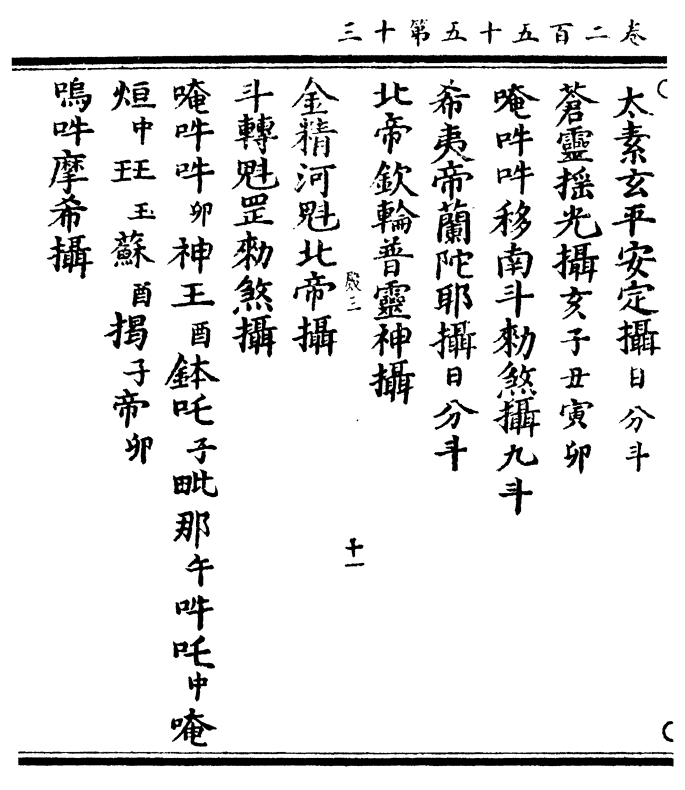 卷二百五十五第十三
太素玄平安定攝日分斗
蒼靈揺光攝亥子丑寅卯
唵吽吽移南斗勑煞攝九斗
希夷帝蘭陀耶攝日分斗
北帝欽輪普靈神攝
殿三 十一
金精河魁北帝攝
斗轉魁罡勑煞攝
唵吽吽卯神王酉鉢吒子毗那午吽吒中唵
烜中玨玉蘇酉揭子帝卯
嗚吽摩希攝